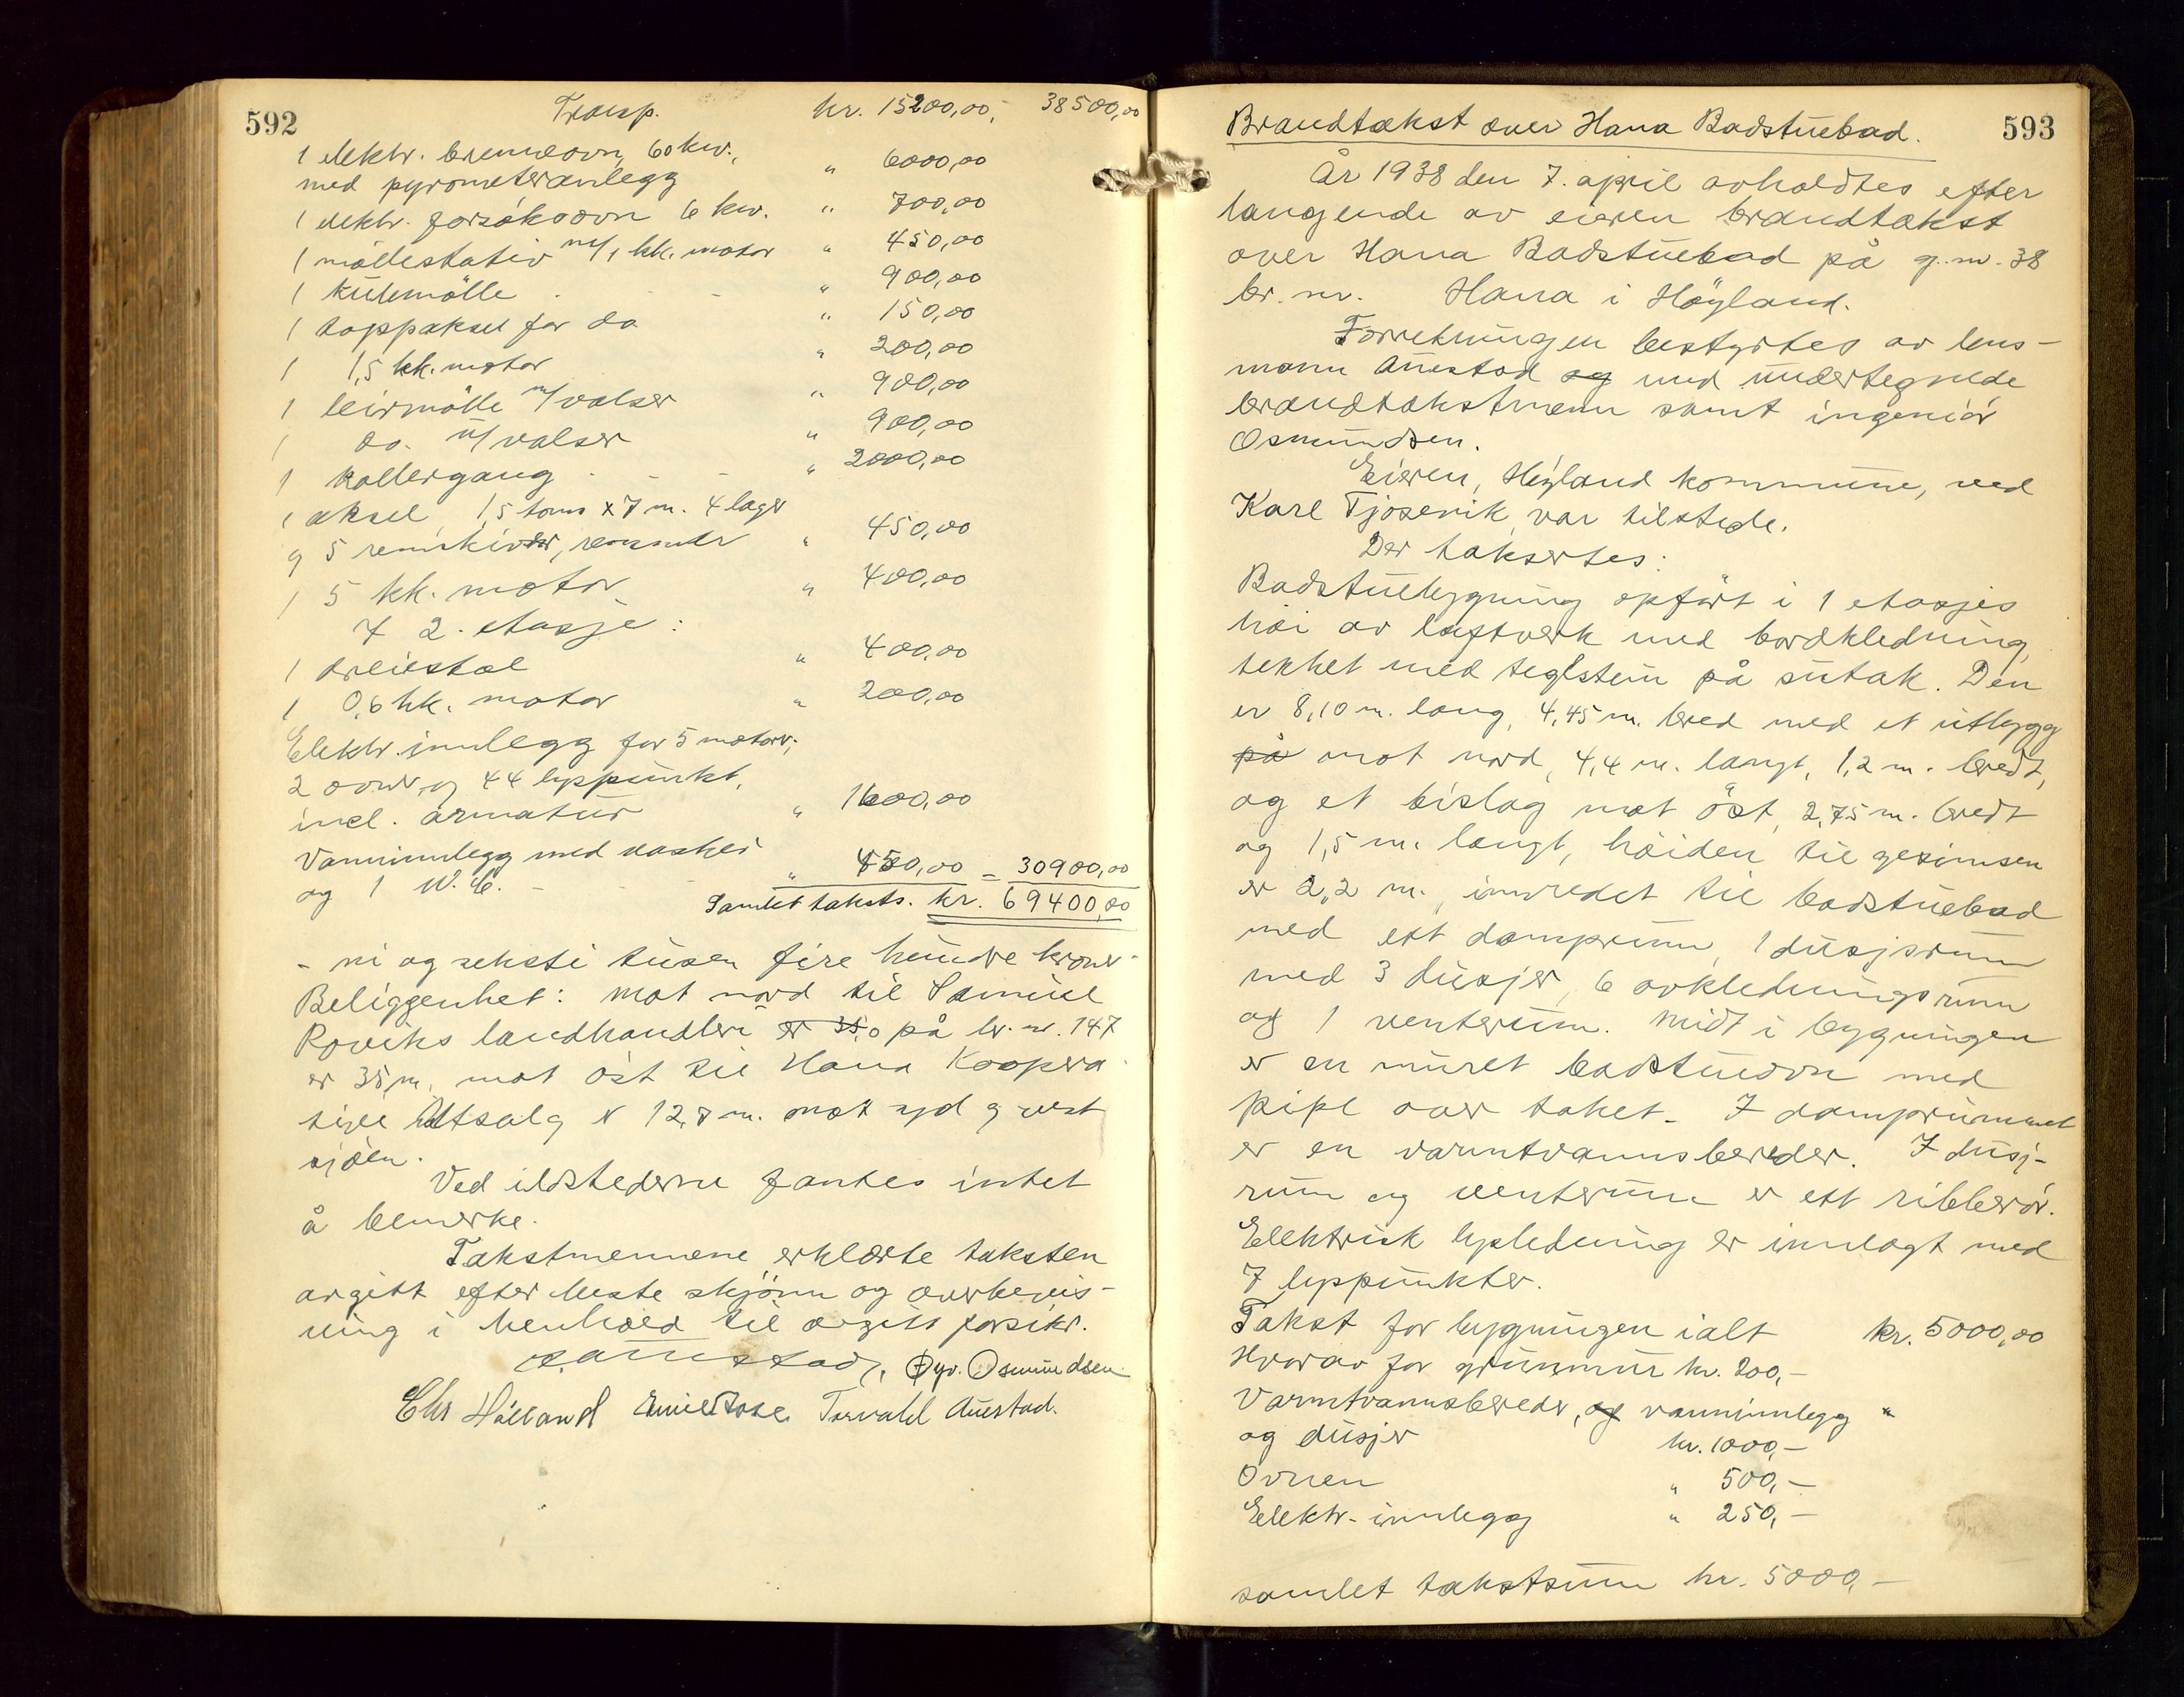 592
Transp. kr. 15200,00, 38500,00
1 elektr. brenneovn, 60 kw.,
med pyrometeranlegg " 6000,00
1 elektr. forsøksovn 6 kw. " 700,00
1 møllestativ m/1 hk. motor " 450,00
1 kulemølle " 900,00
1 toppaksel for do " 150,00
1 1,5 hk. motor " 200,00
1 leirmølle m/valser " 900,00
1 do. u/valser " 900,00
1 kollergang " 2000,00
1 aksel, 1,5 toms x 7 m. 4 lager
og 5 remskiver, remmer " 450,00
1 5 hk. motor " 400,00
I 2. etasje:
1 dreiestol " 400,00
1 0,6 hk. motor " 200,00
Elektr. innlegg for 5 motorer,
2 ovner, og 44 lyspunkt,
incl. armatur " 1600,00
Vanninnlegg med vasker
og 1 W.C. " 450,00 = 30900,00
Samlet taksts. kr. 69400,00
- ni og seksti tusen fire hundre kroner -
Beliggenhet: Mot nord til Samuel
Roviks landhandleri er 35,0 på br. nr. 147
er 35 m, mot øst til Hana Koopera-
tive Utsalg er 12,8 m. mot syd og vest
sjøen.
Ved ildstederne fantes intet
å bemerke.
Takstmennene erklærte taksten
avgitt efter beste skjønn og overbevis-
ning i henhold til avgitt forsikr.
Auestad, Øyv. Osmundsen
Chr Hålland Torvald Auestad.
593
Brandtakst over Hana Badstuebad.
År 1938 den 7. april avholdtes efter
langende av eieren brandtakst
over Hana Badstuebad på g.nr. 38
br. nr. Hana i Høyland.
Forretningen bestyrtes av lens-
mann Auestad og med undertegnede
brandtakstmenn samt ingeniør
Osmundsen.
Eieren, Høyland kommune, ved
Karl Tjøsevik var tilstede.
Der taksertes:
Badstuebygning opført i 1 etasjes
høi av laftverk med bordkledning,
tekket med teglstein på sutak. Den
er 8,10 m. lang, 4,45 m. bred med et utbygg
på mot nord, 4,4 m. langt, 1,2 m. bredt,
og et bislag mot øst, 2,75 m. bredt
og 1,5 m. langt, høiden til gesimsen
er 2,2 m., innredet til badstuebad
med ett damprum, 1 dusjrum
med 3 dusjer, 6 avkledningsrum
og 1 venterum. Midt i bygningen
er en muret badstueovn med
pipe over taket. I damprummet
er en varmtvannsbereder. I dusj-
rum og venterum er ett ribberør.
Elektrisk lysledning er innlagt med
7 lyspunkter.
Takst for bygningen ialt kr. 5000,00
Hvorav for grunnmur kr. 200,-
Varmtvannsbereder, og vanninnlegg "
og dusjer kr. 1000,-
Ovnen " 500,-
Elektr. innlegg " 250,-
samlet takstsum kr. 5000,-